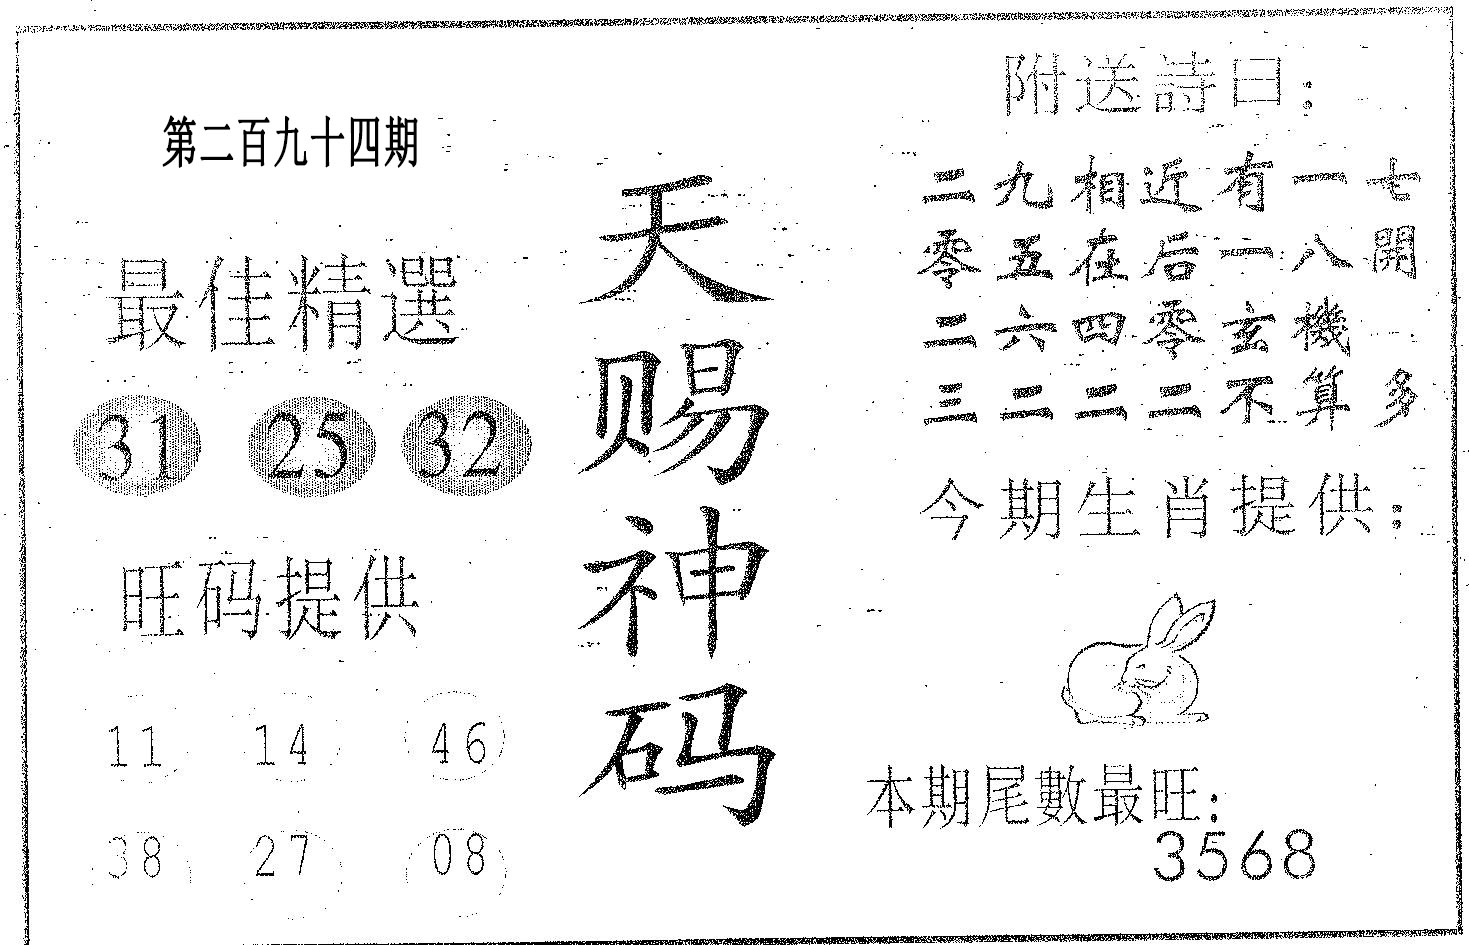 第二百九十四期
最佳精選
31 25 32
旺码提供
11 14 46
38 27 08
天赐神码
附送詩曰：
二九相近有一七
零五在后一八開
二六四零玄機
三二二二不算多
今期生肖提供：
本期尾數最旺：
3568